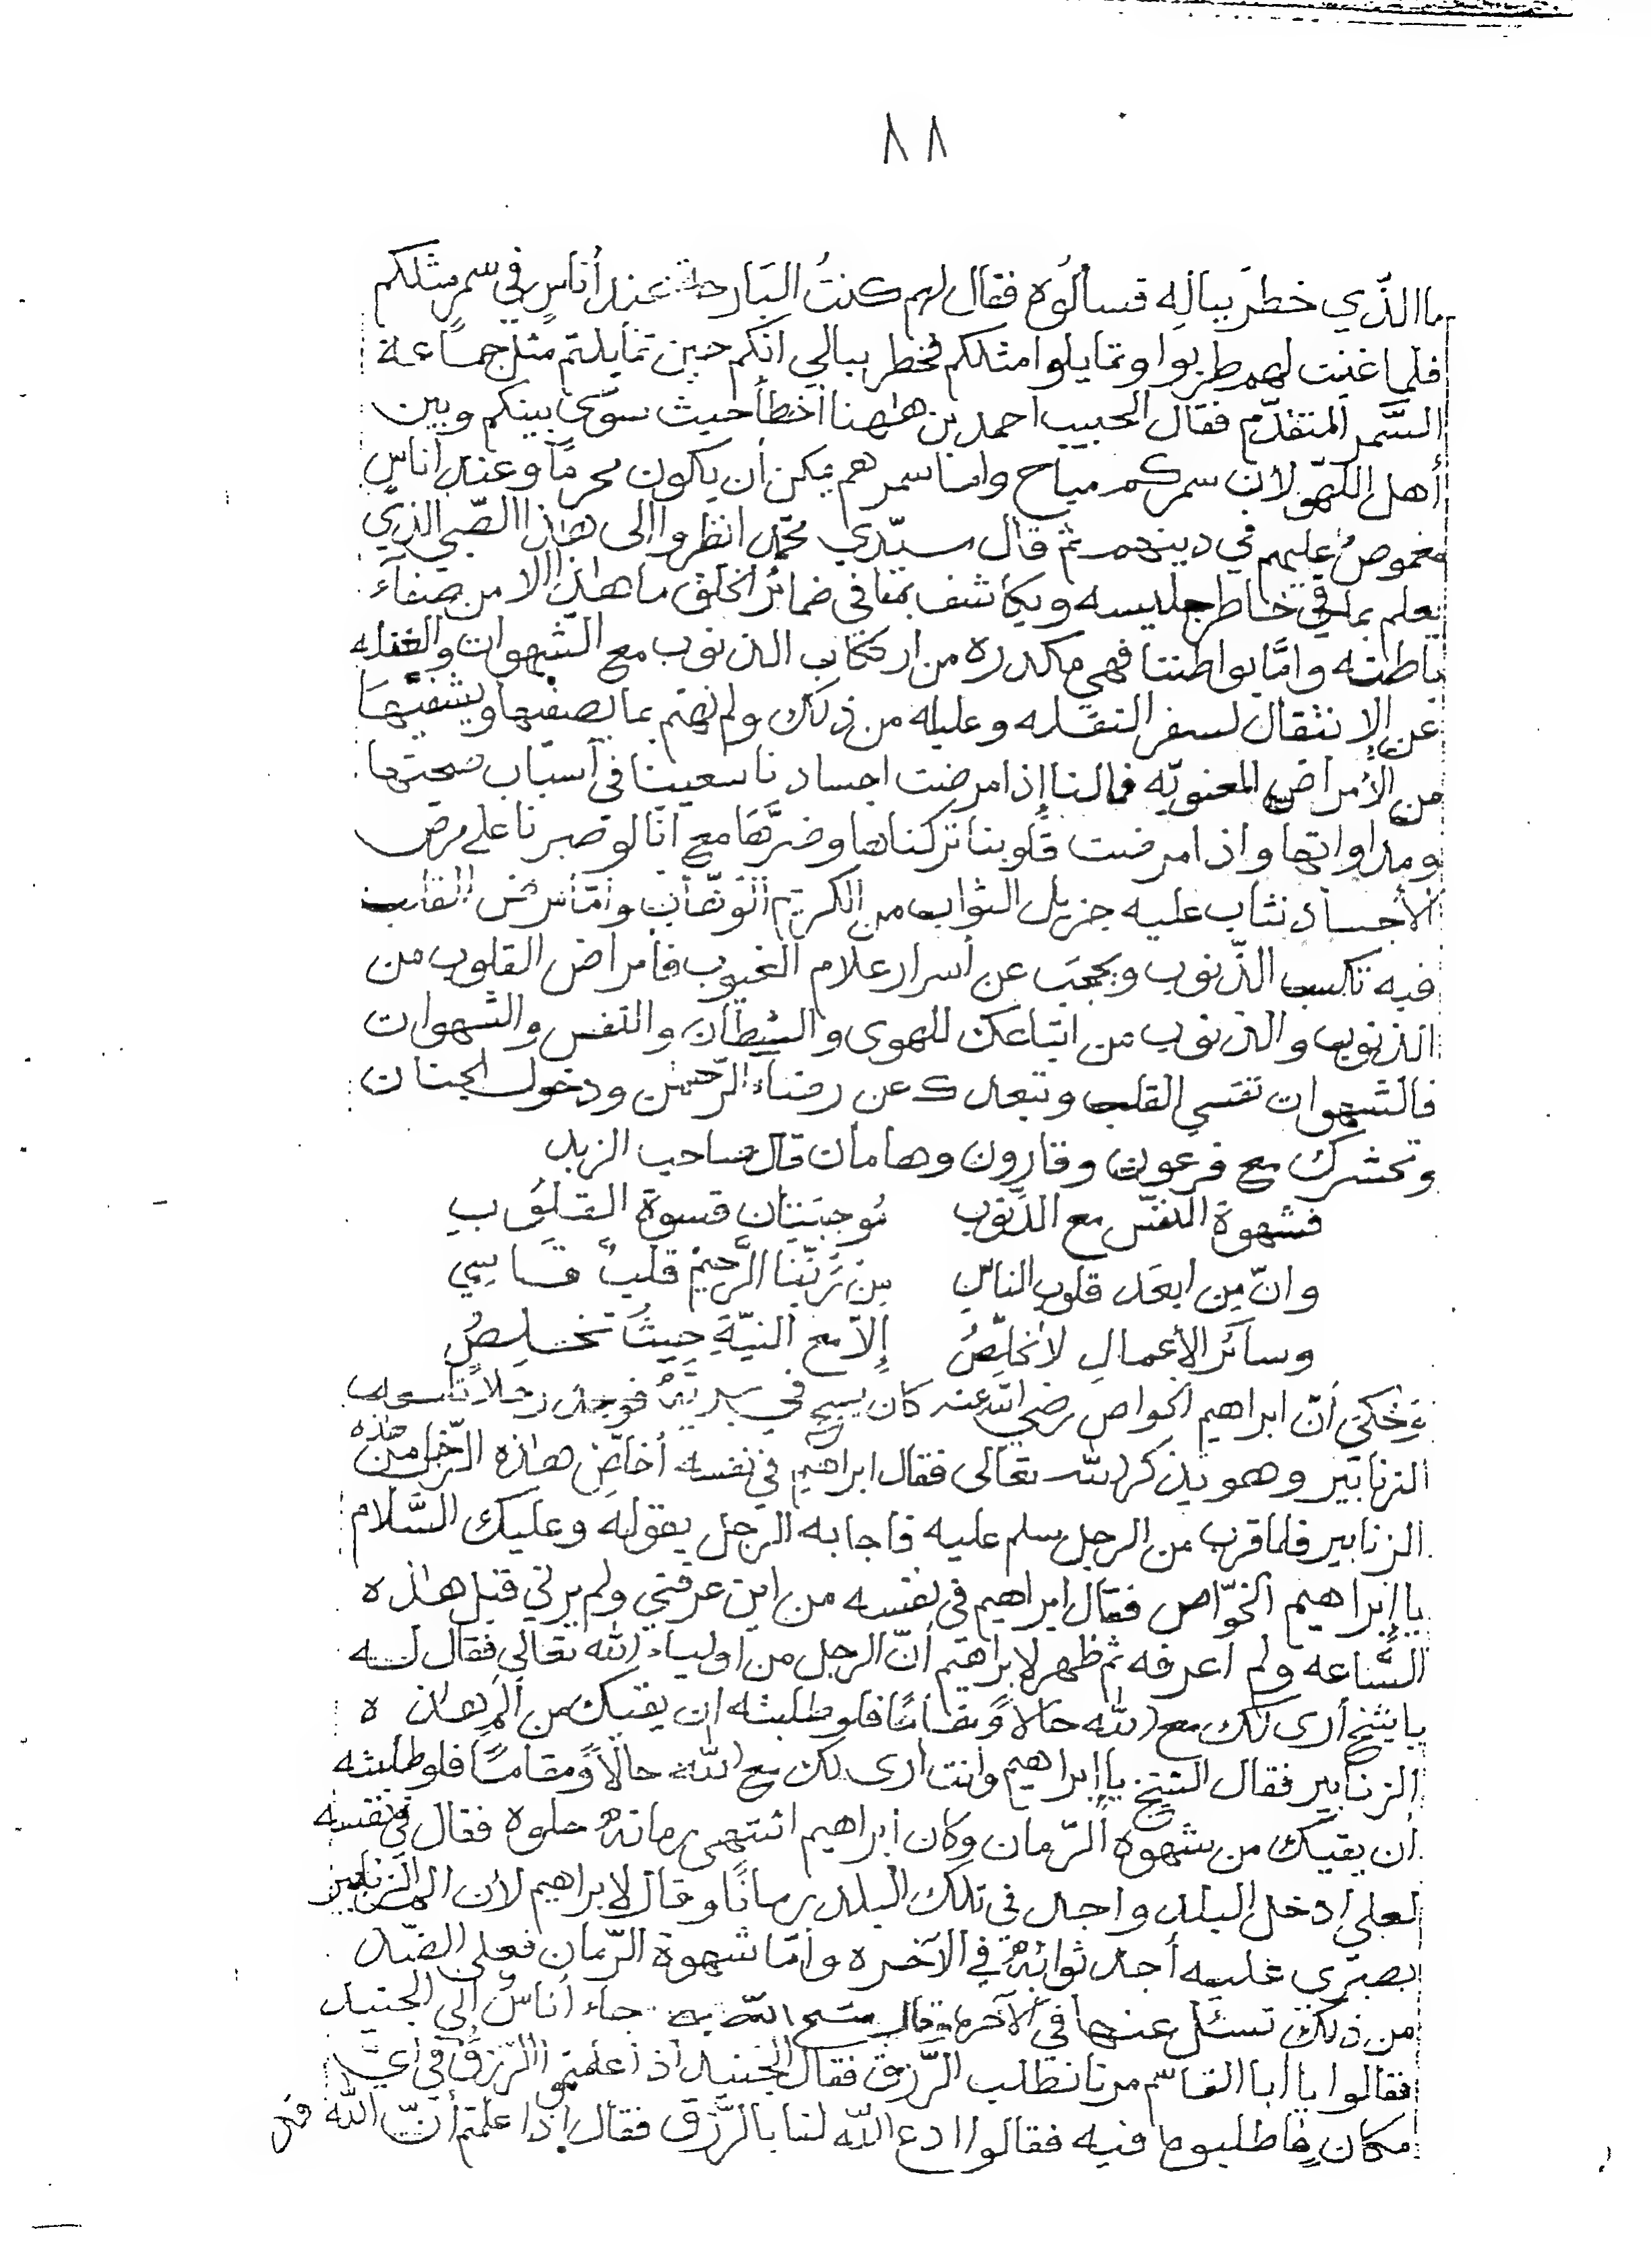 ٨٨
ما الذّي خطرَ ببالِه فسألُوه فقال لهم كنتُ البَارحة عند أناسٍ في سمرٍ مثلكم
فلما غنت لهم طربوا وتمايلوا مثلكم فخطر ببالي انكم حين تمايلتم مثل جماعة
السَّمر المتقدّم فقال الحبيب احمد بن هٰهنا أخطأ حيث سوّى بينكم وبين
أهل اللّهو لان سمركم مباح واما سمرهم يمكن أن يكون محرماً وعند أناسٍ
مغموصٌ عليهم في دينهم ثم قال سيّدي محمّد انظروا إلى هٰذا الصّبي الذّي
يعلم بما في خاطر جليسه ويكاشف بمَا في ضمائر الخلق ما هٰذا الا من صفآء
باطنه وامَّا بواطننا فهي مكدره من ارتكاب الذنوب مع الشّهوات والغفله
عن الإنتقال لسفر النقله وعليله من ذلك ولم نهتم بما يصفيها ويشفيهَا
من الأمراض المعنويّه فمالنا إذا مرضت اجسادنا سعينا في أسبَاب صحتها
ومداواتها واذا مرضت قلوبنا تركناها وضرّهَا مع انّا لو صبرنا على مرض
الأجساد نثاب عليه جزيل الثواب من الكريم الوهّاب وامّا مرض القلب
فيه تكسب الذّنوب ويحجبَ عن أسرار علام الغيوب فأمراض القلوب من
الذنوب والذنوب من اتباعك للهوى والشيطان والنفس والشهوات
فالشهوات تقسي القلب وتبعدك عن رضاء الرّحمٰن ودخول الجنان
وتحشرك مع فرعون وقارون وهامان قال صاحب الزبد
فشهوة النفسِ مع الذّنوبِ مُوجبَتَان قسوة القلُوبِ
وانّ مِن ابعَد قلوبِ الناسِ مِن رَبّنا الرَّحيمْ قلبٌ قَاسِي
وسآئر الأعمالِ لا تخلّصُ إلاّ مع النيّةِ حيثُ تخلصُ
وَحُكيَ أنّ ابراهيم الخواص رضي الله عنه كان يسيح في بريَّةٌ فوجد رجلاً
الزنابير وهو يذكر الله تعالى فقال ابراهيم في نفسه أخلّصُ هٰذه الرّجل من هٰذه
الزنابير فلما قرب من الرجل سلم عليه فاجابه الرّجل بقوله وعليك السَّلام
يا إبراهيم الخوّاص فقال ابراهيم في نفسه من اين عرفني ولم يرني قبل هٰذه
السَّاعه ولم أعرفه ثم ظهر لابراهيم أنّ الرجل من أولياء الله تعالى فقال له
يا شيخ أرى لك مع الله حالاً ومقامًا فلو طلبته ان يقيك من ألَمِ هٰذه
الزنابير فقال الشيخ يا إبراهيم وأنت أرى لك مع الله حالاً ومقامًا فلو طلبته
أن يقيك من شهوة الرّمان وكان ابراهيم اشتهى رمانةٌ حلوه فقال في نفسه
لعلي ادخل البلد واجد في تلك البلد رمانًا وقال لابراهيم لأن الزنابير
بصبري عليه أجد ثوابُهٌ في الآخره وأمّا شهوة الرّمان فعلى الضّد
من ذلك تسئل عنها في الآخره جاء أناسٌ إلى الجنيد
فقالوا يا أبا القاسم مرنا نطلب الرّزق فقال الجنيد اذا علمتم الرّزق في أيّ
مكانٍ فاطلبوه فيه فقالوا ادع الله لنا بالرّزق فقال إذا علمتم أنّ الله